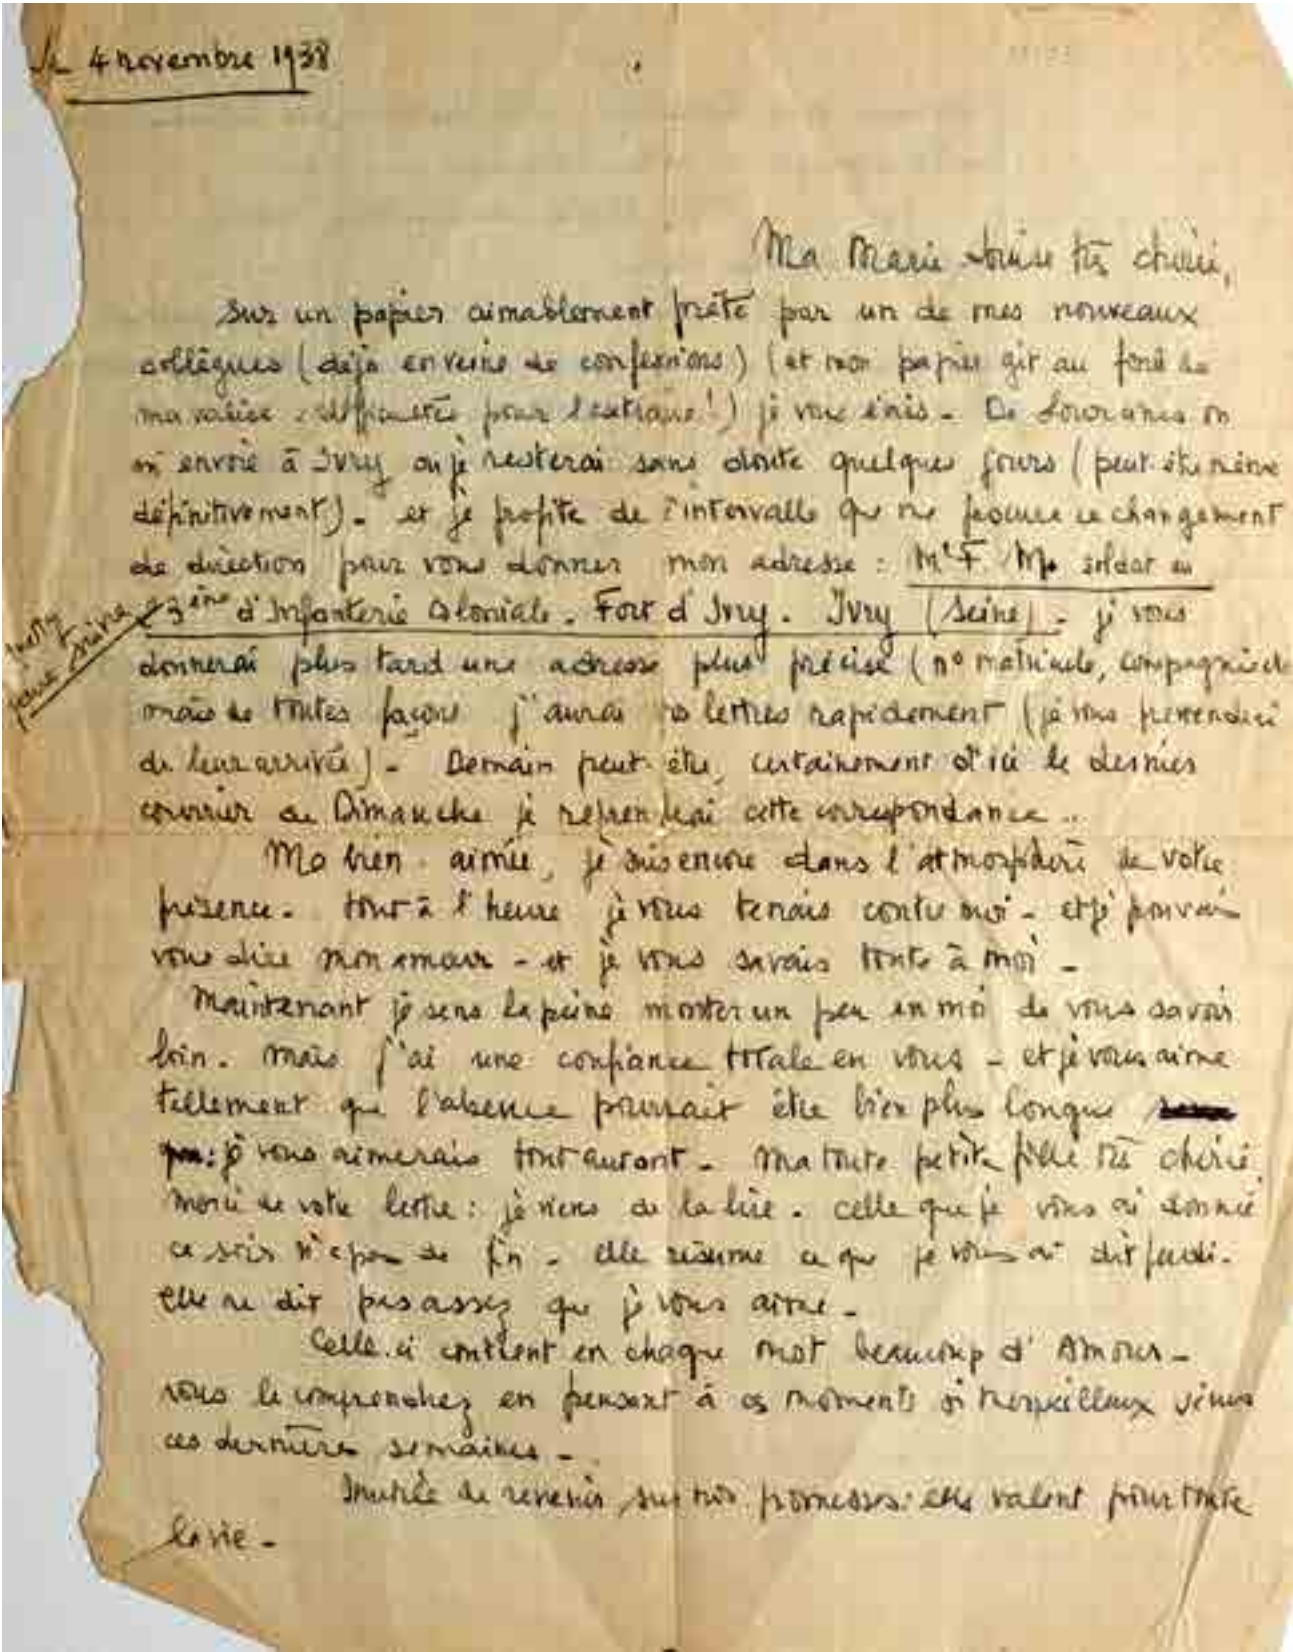 le 4 novembre 1938
Ma Marie Louise très chérie,
Sur un papier aimablement prêté par un de mes nouveaux
collègues (déjà en veine de confessions) (et mon papier gît au fond de
ma valise : difficultés pour l'extraire!) je vous écris - De on
m'envoie à Ivry où je resterai sans doute quelques jours (peut-être même
définitivement). et je profite de l'intervalle que me procure ce changement
de direction pour vous donner mon adresse : Mr F. soldat au
23ème d'Infanterie Coloniale. Fort d'Ivry. Ivry (Seine). je vous
faire suivre
donnerai plus tard une adresse plus précise (n° matricule, compagnie
mais de toutes façons j'aurai vos lettres rapidement (je vous préviendrai
de leur arrivée). Demain peut-être, certainement d'ici le dernier
courrier de Dimanche je reprendrai cette correspondance ..
Ma bien-aimée, je suis encore dans l'atmosphère de votre
présence. tout à l'heure je vous tenais contre moi - et je pouvais
vous dire mon amour - et je vous savais toute à moi -
Maintenant je sens la peine monter un peu en moi de vous savoir
loin. Mais j'ai une confiance totale en vous - et je vous aime
tellement que l'absence pourrait être bien plus longue
je vous aimerais tout autant. Ma toute petite fille très chérie
merci de votre lettre : je viens de la lire. celle que je vous ai donnée
ce soir n'a pas de fin - elle résume ce que je vous ai dit jeudi.
elle ne dit pas assez que je vous aime -
Celle-ci contient en chaque mot beaucoup d'Amour -
vous le comprendrez en pensant à ces moments si merveilleux vécus
ces dernières semaines -
Inutile de revenir sur nos promesses : elles valent pour toute
la vie -